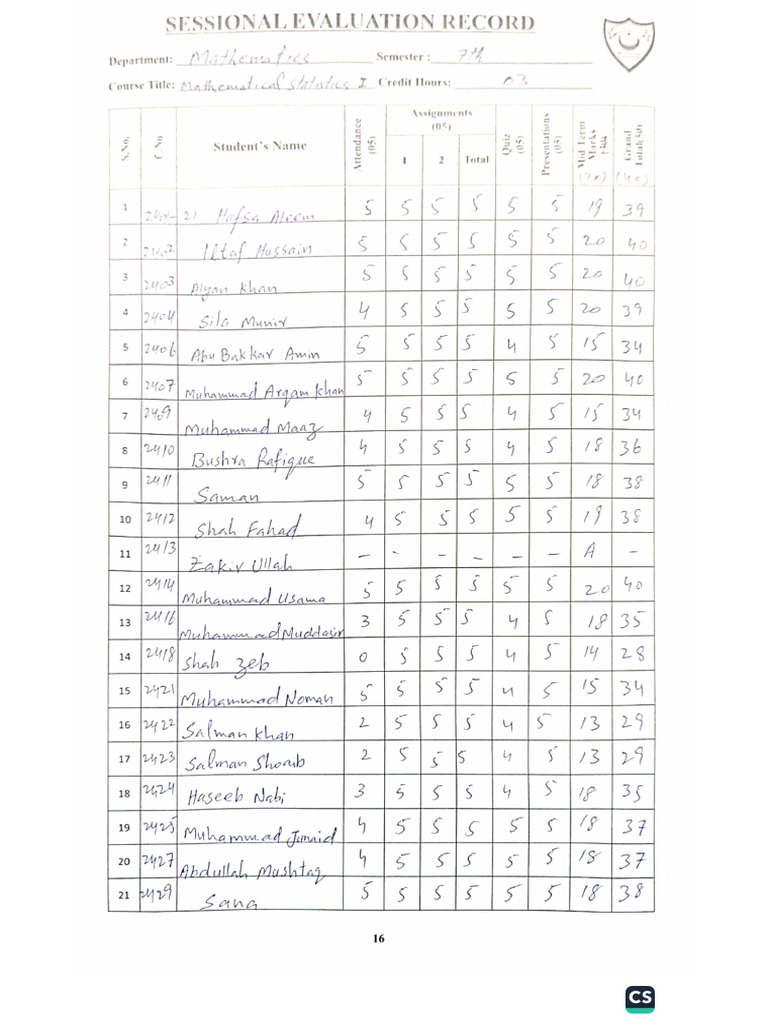 SESSIONAL EVALUATION RECORD
Department: Mathematics Semester : 7th
Course Title: Mathematical Statistics I Credit Hours: 03
S.No. C.No Student's Name Attendance (05) Assignments (05) 1 2 Total Quiz (05) Presentations (05) Mid Term Marks (20) Grand Total(50) (40)
1 2401-21 Hafsa Aleem 5 5 5 5 5 5 19 39
2 2402 Iltaf Hussain 5 5 5 5 5 5 20 40
3 2403 Alyan Khan 5 5 5 5 5 5 20 40
4 2404 Sila Munir 4 5 5 5 5 5 20 39
5 2406 Abu Bakkar Amin 5 5 5 5 4 5 15 34
6 2407 Muhammad Arqam Khan 5 5 5 5 5 5 20 40
7 2409 Muhammad Maaz 4 5 5 5 4 5 15 34
8 2410 Bushra Rafique 4 5 5 5 4 5 18 36
9 2411 Saman 5 5 5 5 5 5 18 38
10 2412 Shah Fahad 4 5 5 5 5 5 19 38
11 2413 Zakir Ullah - - - - - - A -
12 2414 Muhammad Usama 5 5 5 5 5 5 20 40
13 2416 Muhammad Muddasir 3 5 5 5 4 5 18 35
14 2418 Shah Zeb 0 5 5 5 4 5 14 28
15 2421 Muhammad Noman 5 5 5 5 4 5 15 34
16 2422 Salman Khan 2 5 5 5 4 5 13 29
17 2423 Salman Shoaib 2 5 5 5 4 5 13 29
18 2424 Haseeb Nabi 3 5 5 5 4 5 18 35
19 2425 Muhammad Junaid 4 5 5 5 5 5 18 37
20 2427 Abdullah Mushtaq 4 5 5 5 5 5 18 37
21 2429 Sana 5 5 5 5 5 5 18 38
16
CS